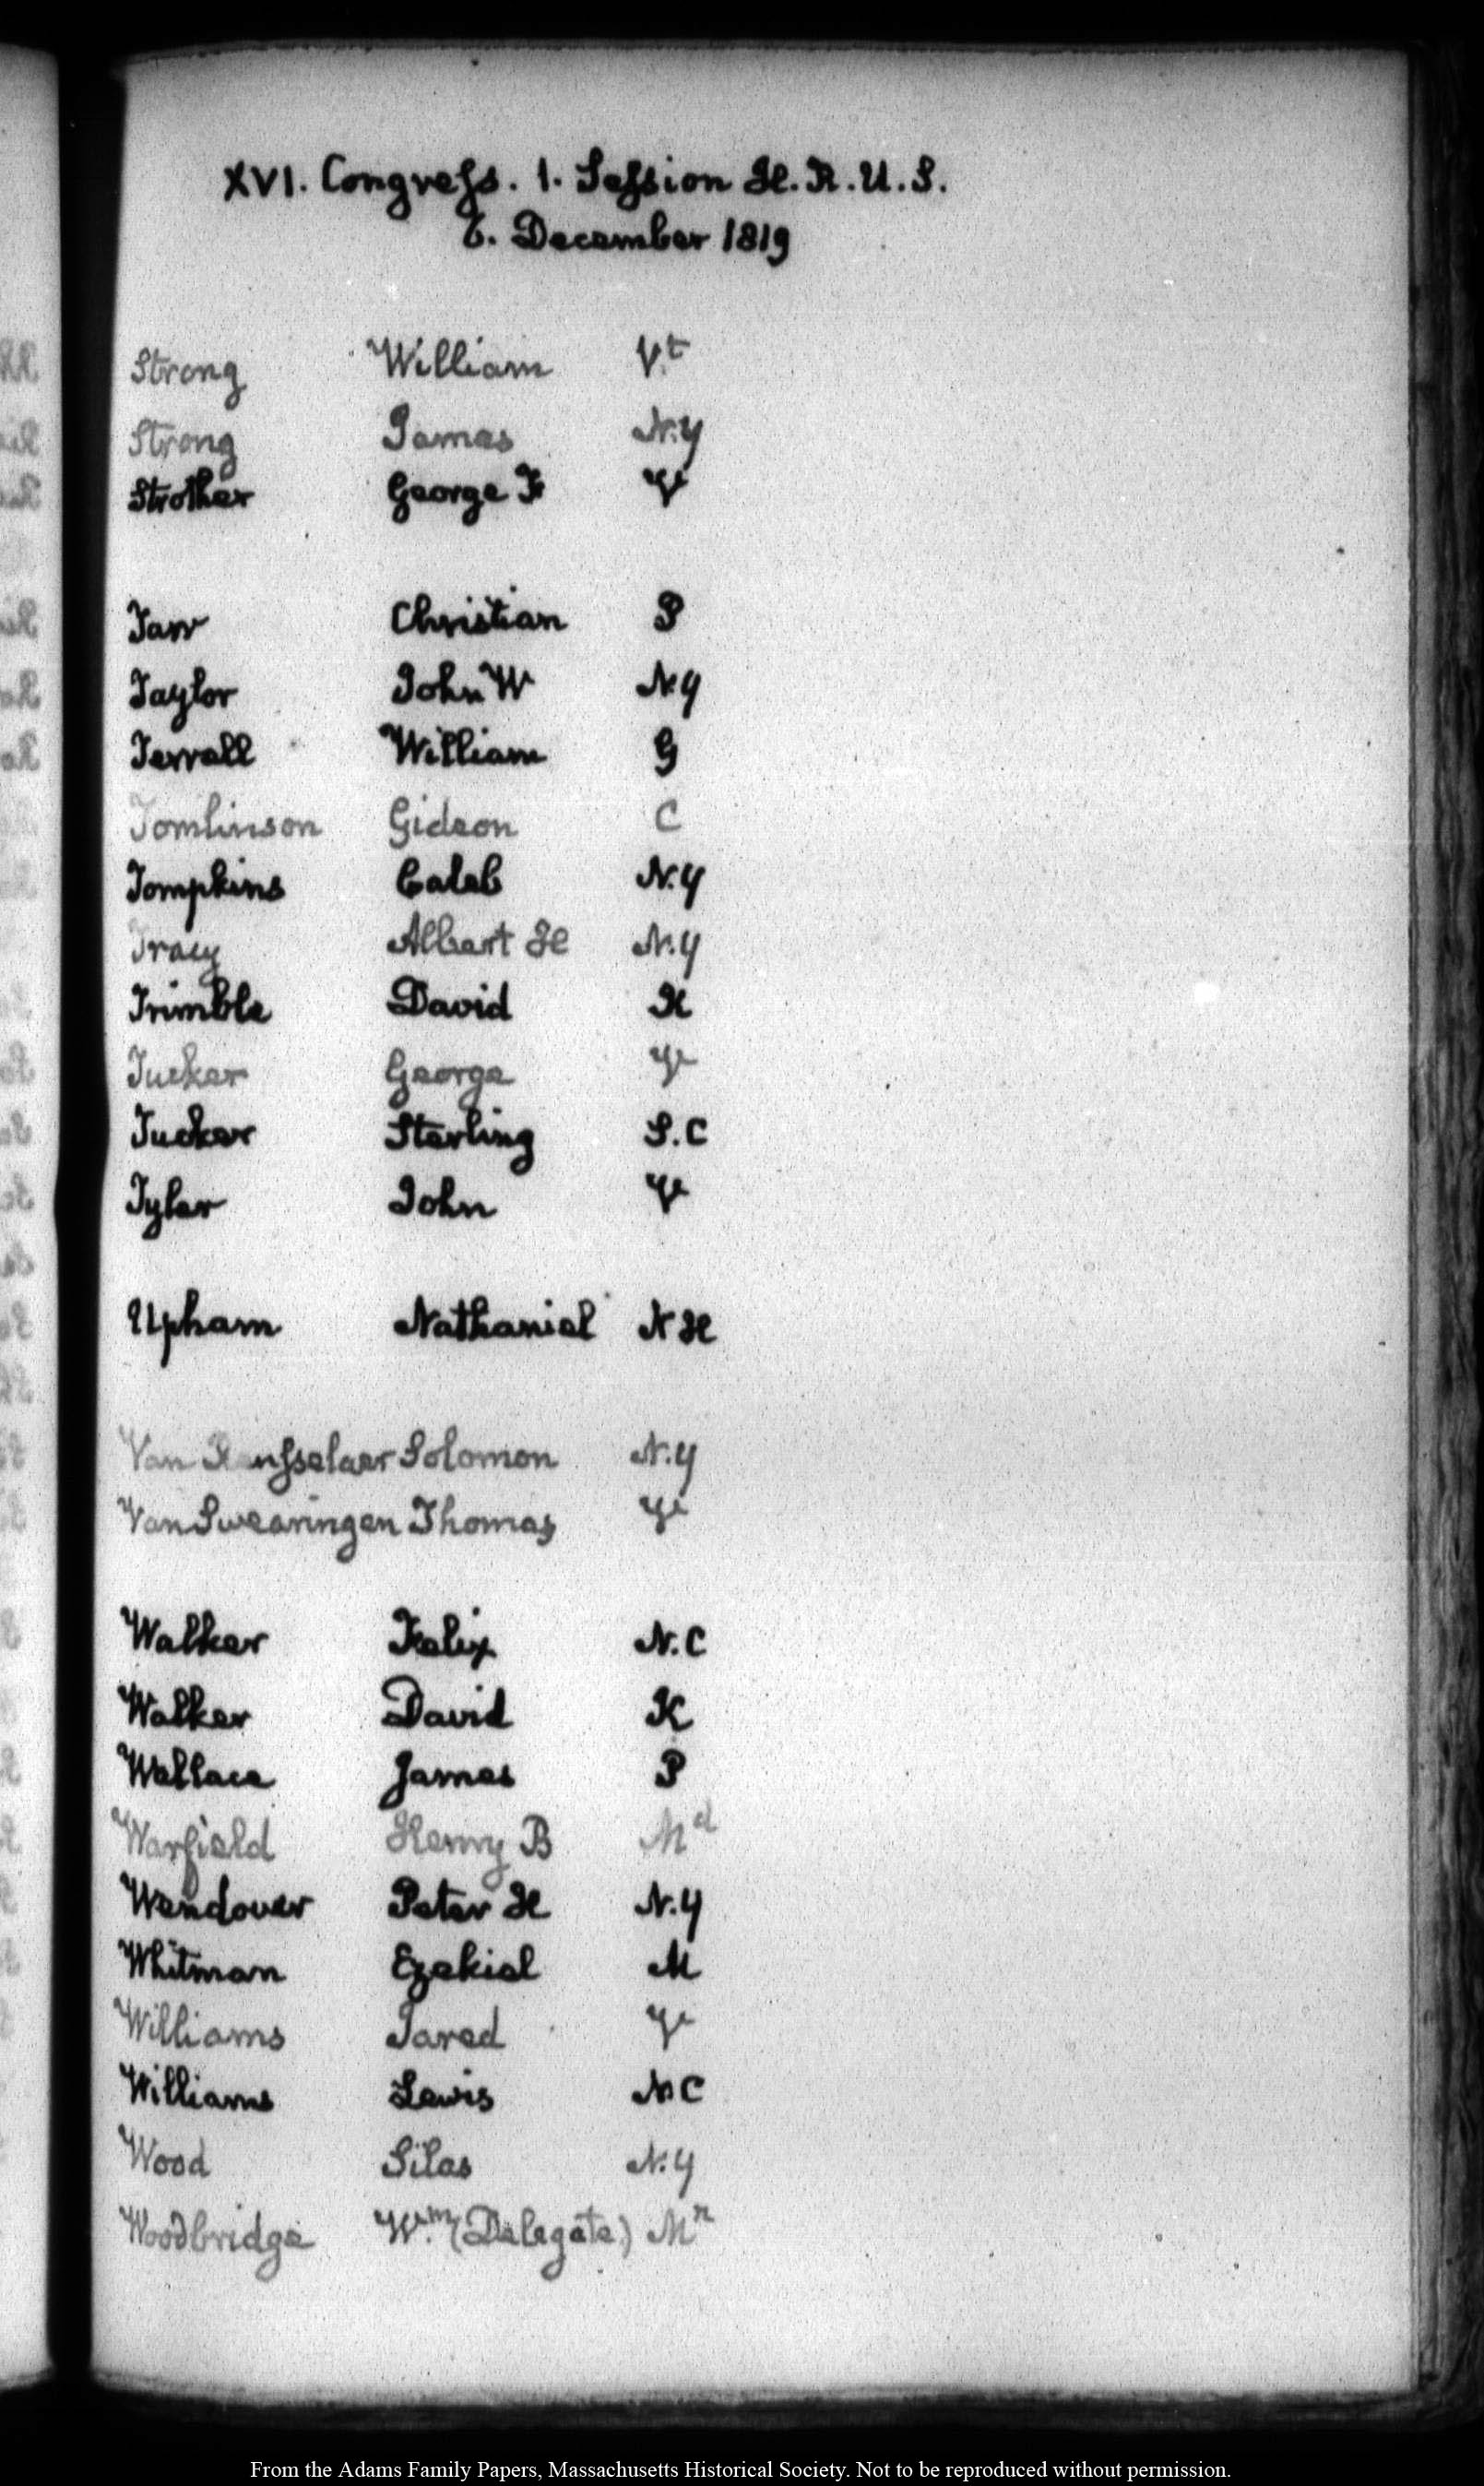 XVI. Congress. 1. Session H.R.U.S.
6. December 1819
Strong William V.t
Strong James N.Y
Strother George F V
Tarr Christian P
Taylor John W N.Y
Terrall William G
Tomlinson Gideon C
Tompkins Caleb N.Y
Tracy Albert H N.Y
Trimble David K
Tucker George V
Tucker Sterling S.C
Tyler John V
Upham Nathaniel N H
Van Rensselaer Solomon N.Y
Van Swearingen Thomas V
Walker Felix N.C
Walker David K
Wallace James P
Warfield Henry B Md
Wendover Peter H N.Y
Whitman Ezekiel M
Williams Jared V
Williams Lewis N C
Wood Silas N.Y
Woodbridge W.m (Delegate) Mn
From the Adams Family Papers, Massachusetts Historical Society. Not to be reproduced without permission.